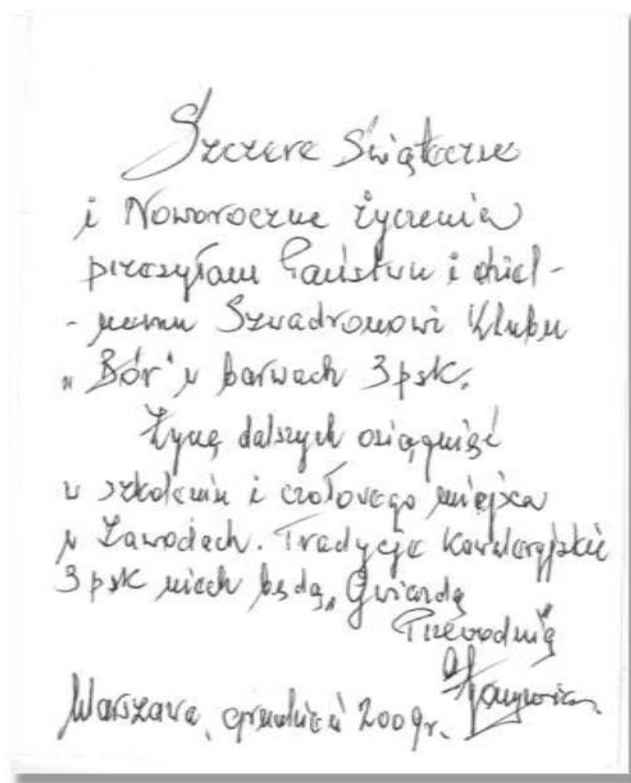 Szczere Świąteczne
i Noworoczne życzenia
przesyłam Państwu i dziel-
- nemu Szwadronowi Klubu
„Bór" w barwach 3 psk.
Życzę dalszych osiągnięć
w szkoleniu i czołowego miejsca
w Zawodach. Tradycje Kawaleryjskie
3 psk niech będą „Gwiazdą
Przewodnią"
Warszawa, grudzień 2009 r.